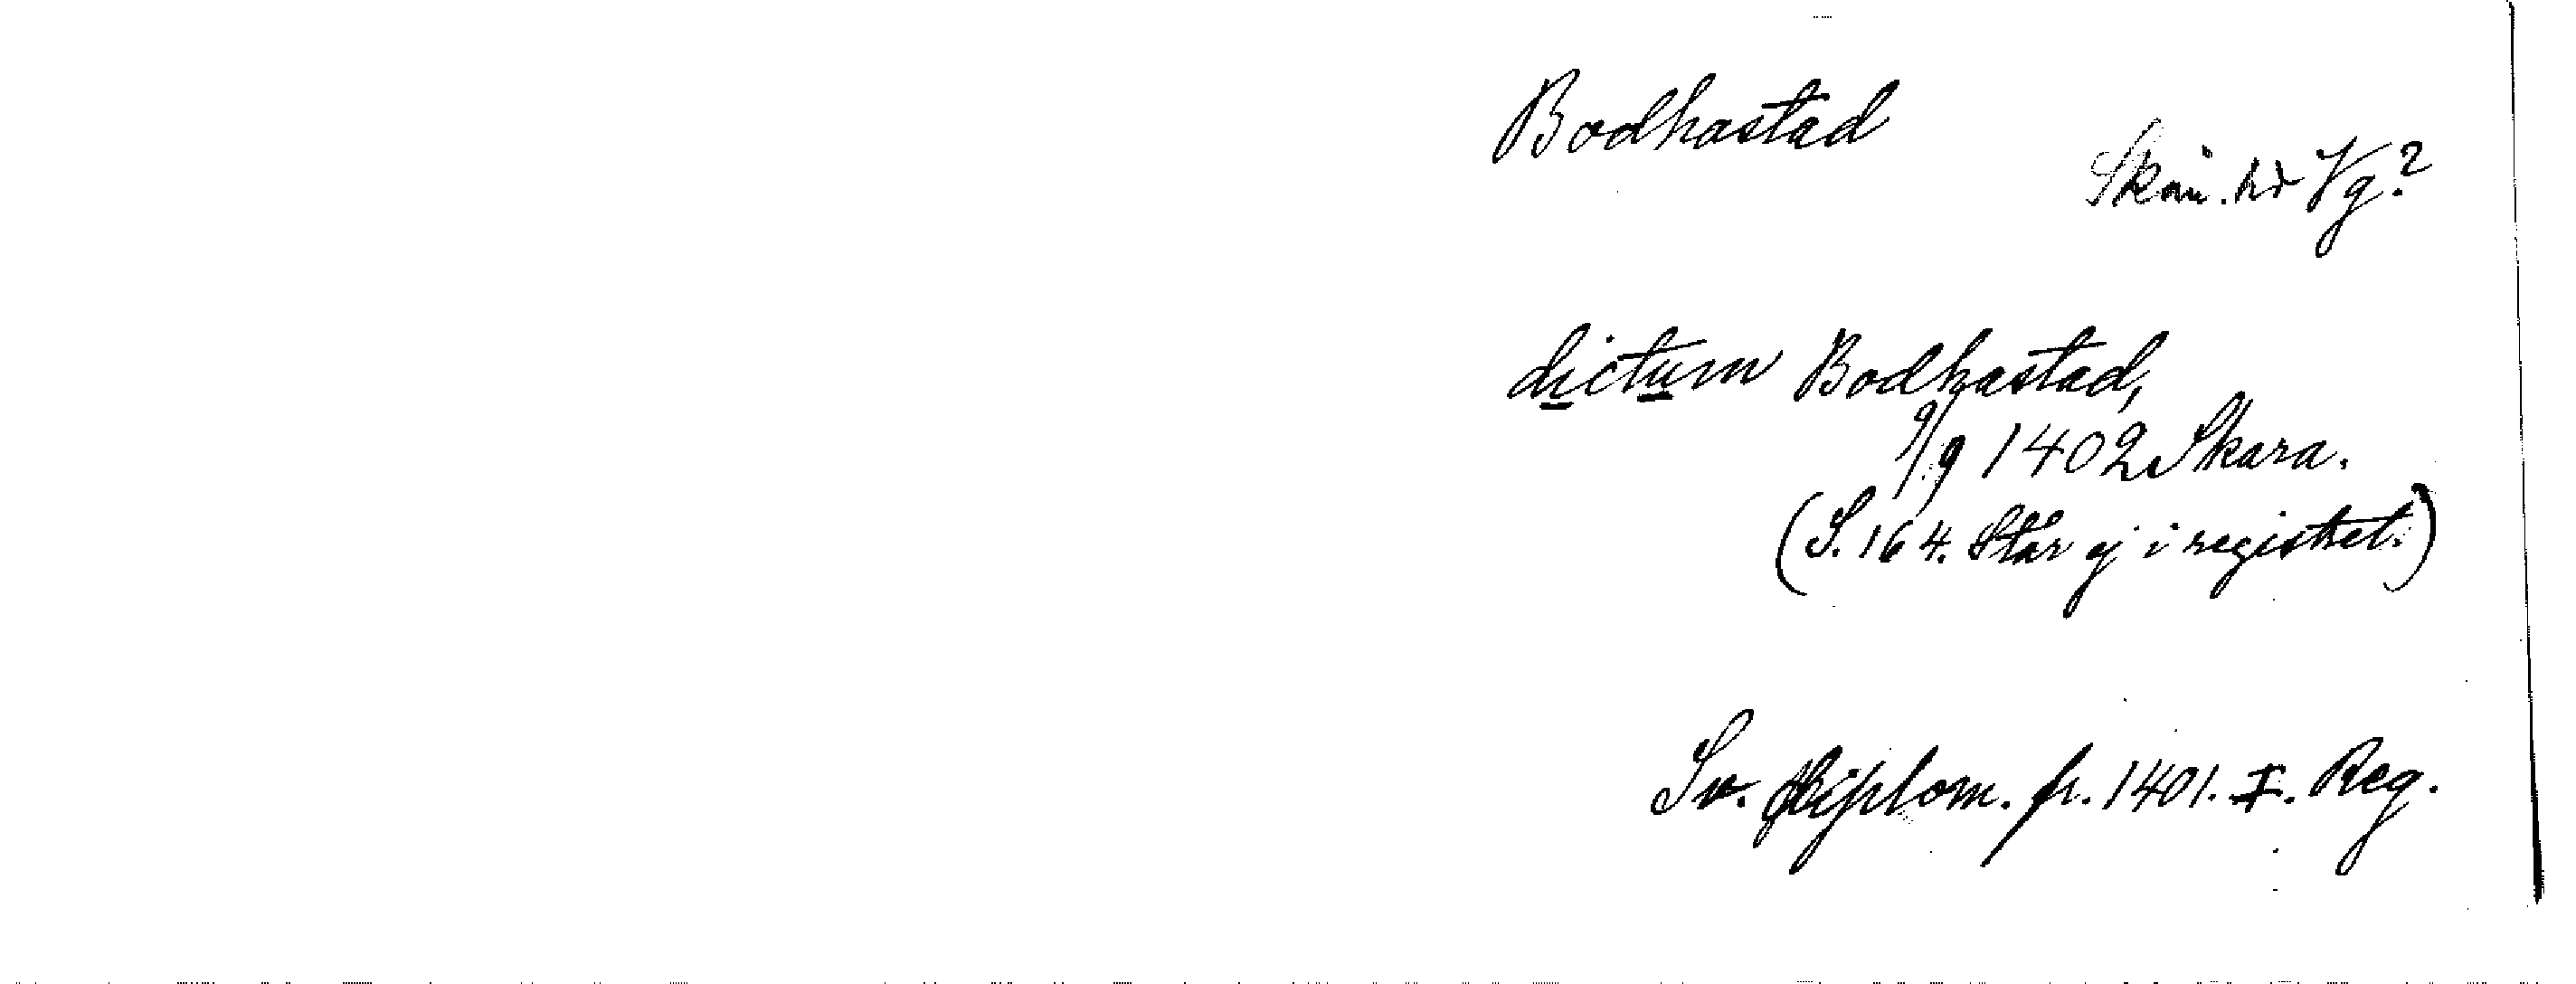 Bodhastad
Skån. hd Vg?
dictum Bodhastad,
9/9 1402 Skara.
(S. 164. Står ej i registret.)
Sv. Diplom. fr. 1401. I. Reg.